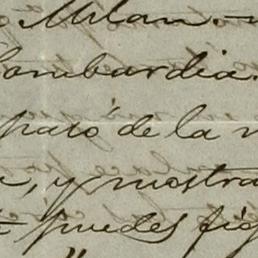 Milan.
Lombardia.
pasó de la
, y mostra
puedes fig